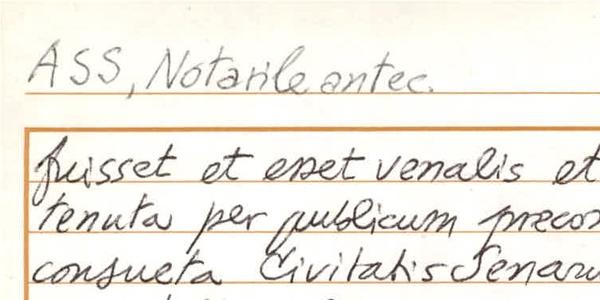 ASS, Notarile antec.
fuisset et esset venalis et
tenuta per publicum precon
consueta Civitatis Senaru